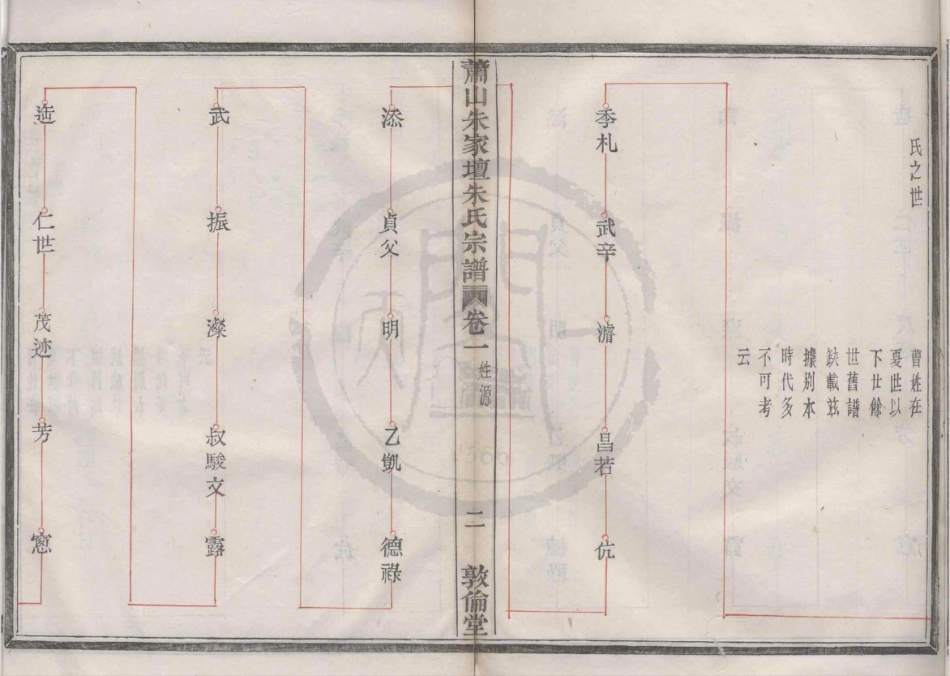 氏之世
曹姓在
夏世以
下廿餘
世舊譜
缺載茲
據别本
時代多
不可考
云
季札
武辛
濳
昌若
伉
蕭山朱家壇朱氏宗譜 卷一 姓源 二 敦倫堂
添
貞父
明
乙凱
德祿
武
振
濴
叔駿文
露
仁世
茂迹
芳